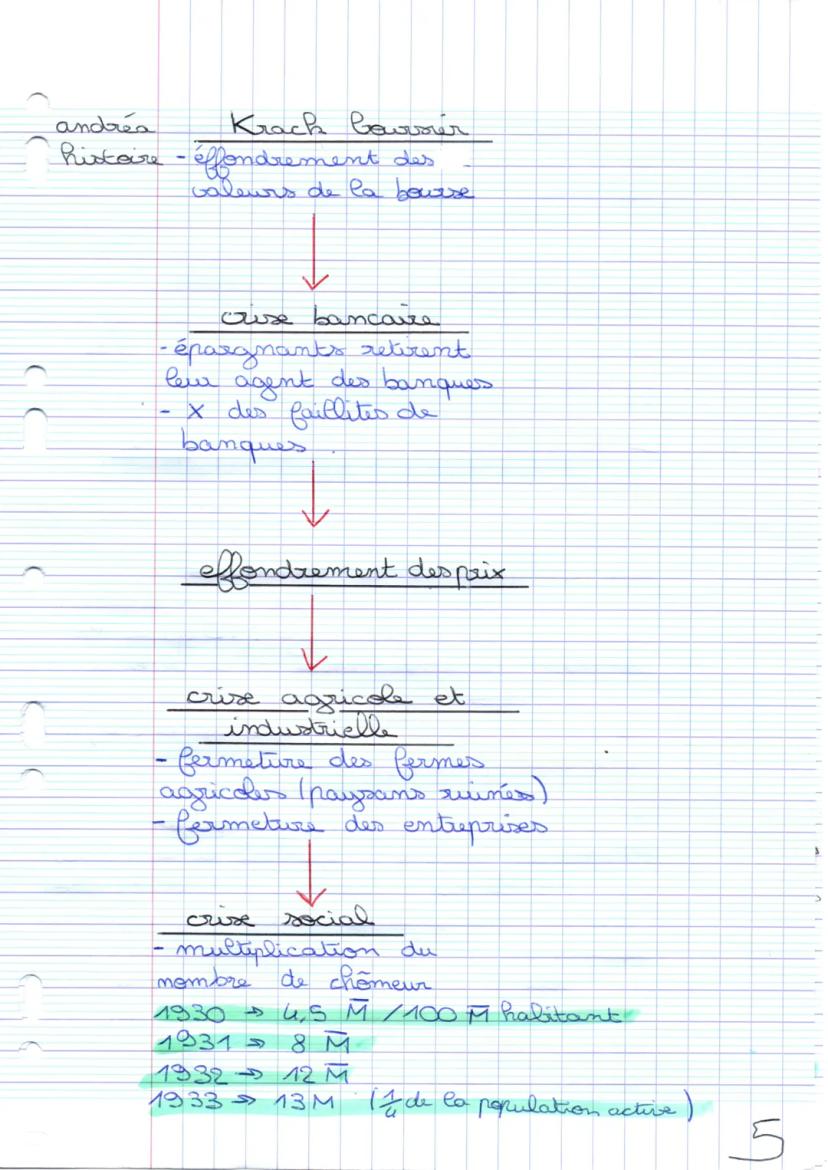 andréa Krach boursier
histoire - éffondrement des
valeurs de la bourse
crise bancaire
- épargnants retirent
leur agent des banques
- x des faillites de
banques.
effondrement des prix
crise agricole et
industrielle
- fermeture des fermes
agricoles (paysans ruinés)
- fermeture des entreprises
crise social
- multiplication du
nombre de chômeur
1930 → 4,5 M̅ / 100 M̅ habitant
1931 → 8 M̅
1932 → 12 M̅
1933 → 13 M (1/4 de la population active)
5